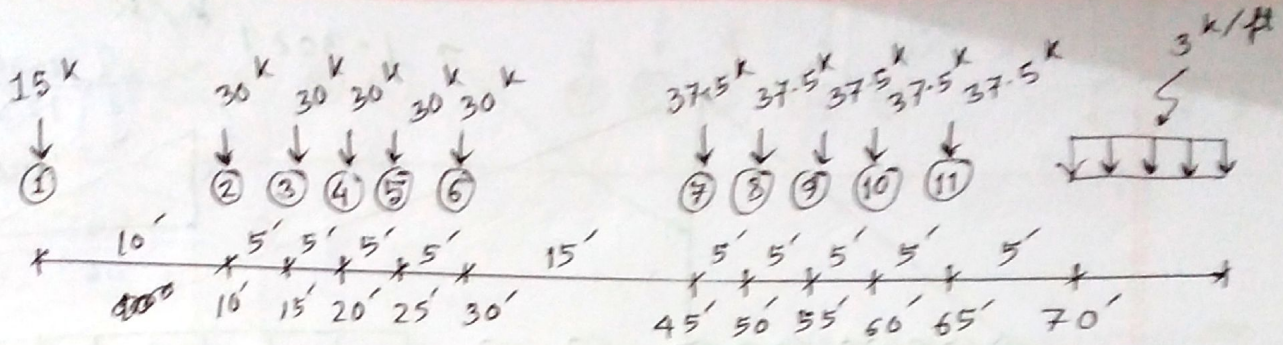 15ᵏ 30ᵏ 30ᵏ 30ᵏ 30ᵏ 30ᵏ 37.5ᵏ 37.5ᵏ 37.5ᵏ 37.5ᵏ 37.5ᵏ 3 ᵏ/ft
① ② ③ ④ ⑤ ⑥ ⑦ ⑧ ⑨ ⑩ ⑪
10′ 5′ 5′ 5′ 5′ 15′ 5′ 5′ 5′ 5′ 5′
10′ 15′ 20′ 25′ 30′ 45′ 50′ 55′ 60′ 65′ 70′